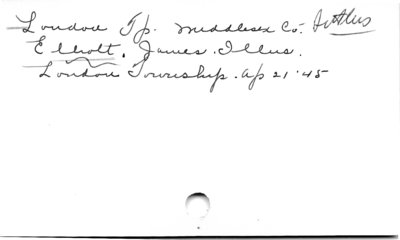 London Tp. Middlesex Co. Settlers
Elliott, James. Illus.
London Township. Ap 21 '45